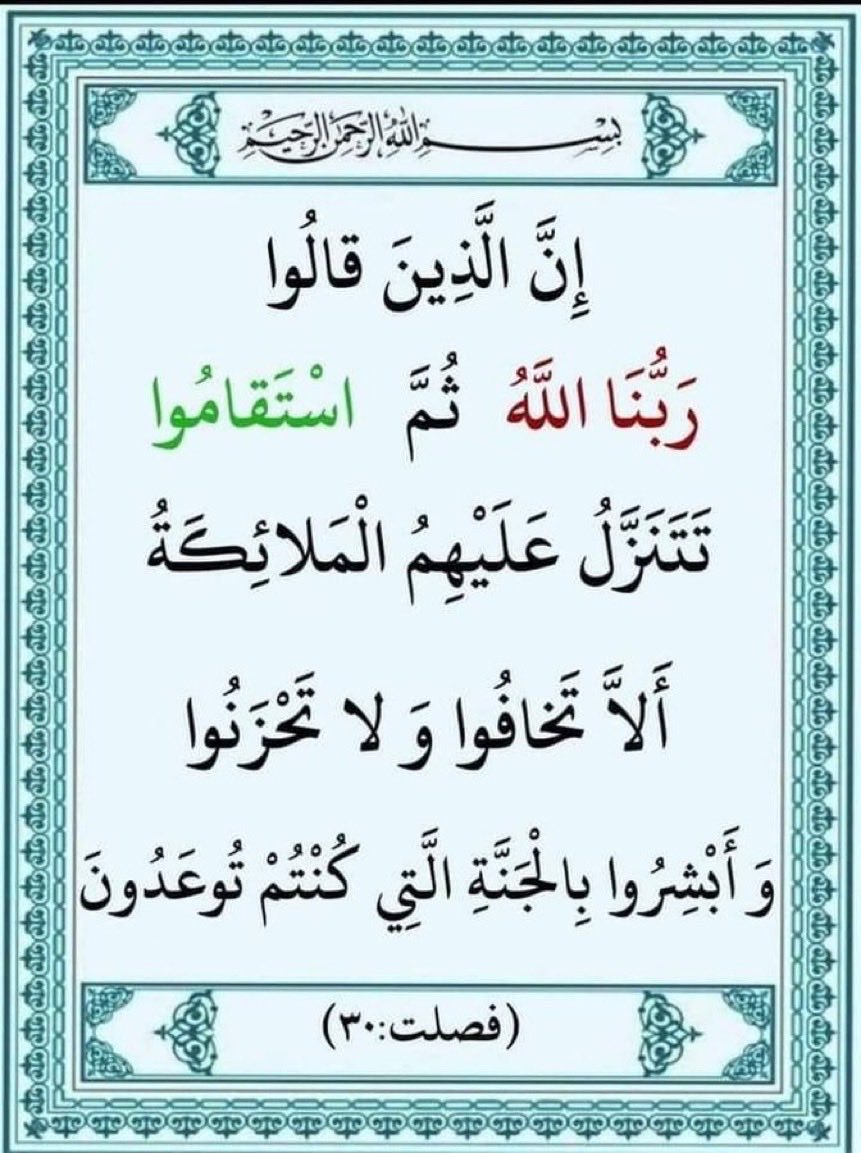 بِسْمِ اللهِ الرَّحْمٰنِ الرَّحِيْمِ
إِنَّ الَّذِينَ قالُوا
رَبُّنَا اللَّهُ ثُمَّ اسْتَقامُوا
تَتَنَزَّلُ عَلَيْهِمُ الْمَلائِكَةُ
أَلاَّ تَخافُوا وَ لا تَحْزَنُوا
وَ أَبْشِرُوا بِالْجَنَّةِ الَّتِي كُنْتُمْ تُوعَدُونَ
(فصلت:٣٠)